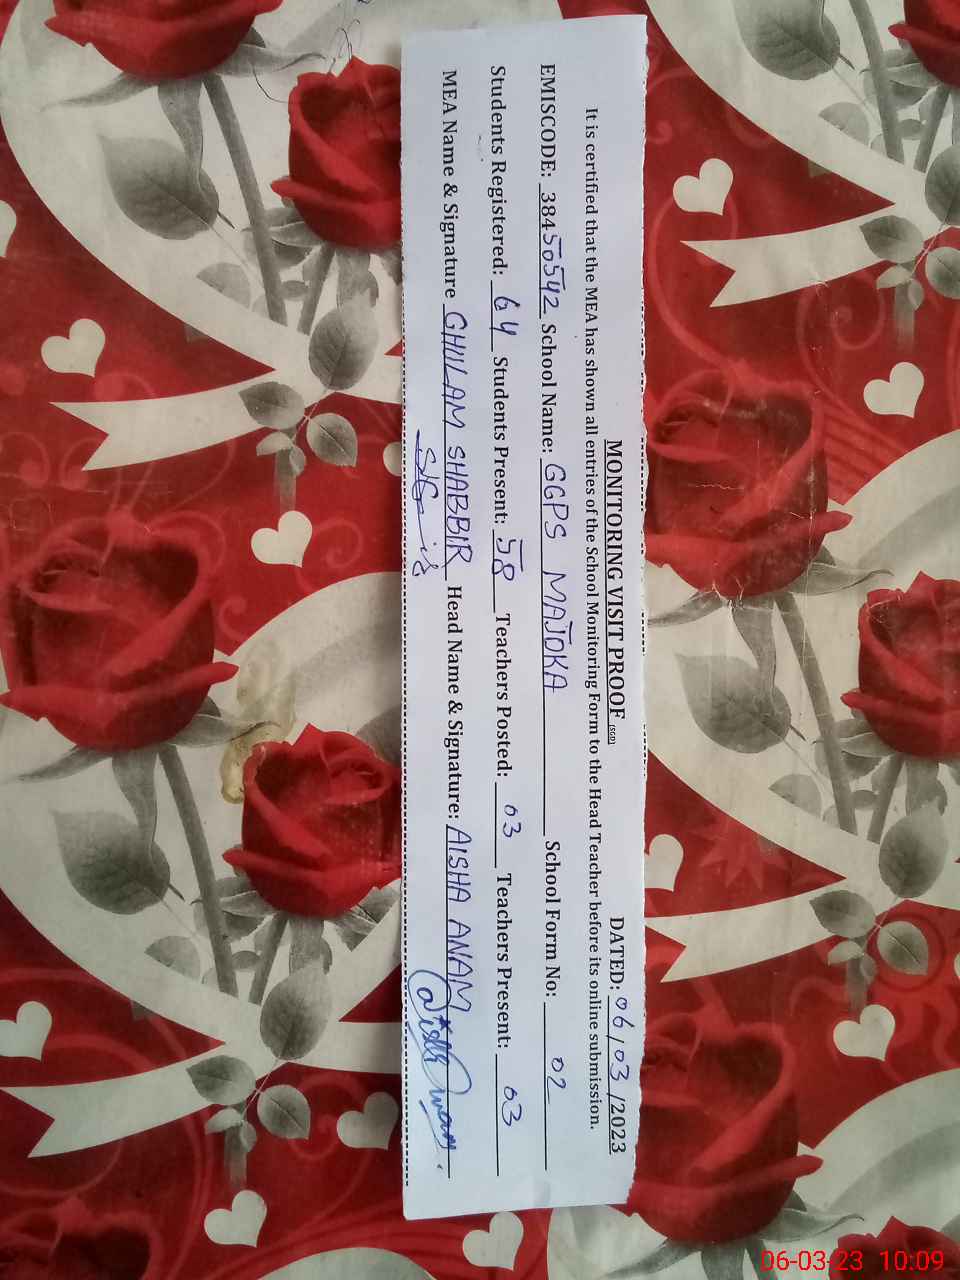 MONITORING VISIT PROOF (SGD) DATED: 06/03/2023
It is certified that the MEA has shown all entries of the School Monitoring Form to the Head Teacher before its online submission.
EMISCODE: 38450542 School Name: GGPS MAJOKA School Form No: 02
Students Registered: 64 Students Present: 58 Teachers Posted: 03 Teachers Present: 03
MEA Name & Signature GHULAM SHABBIR Head Name & Signature: AISHA ANAM
06-03-23 10:09